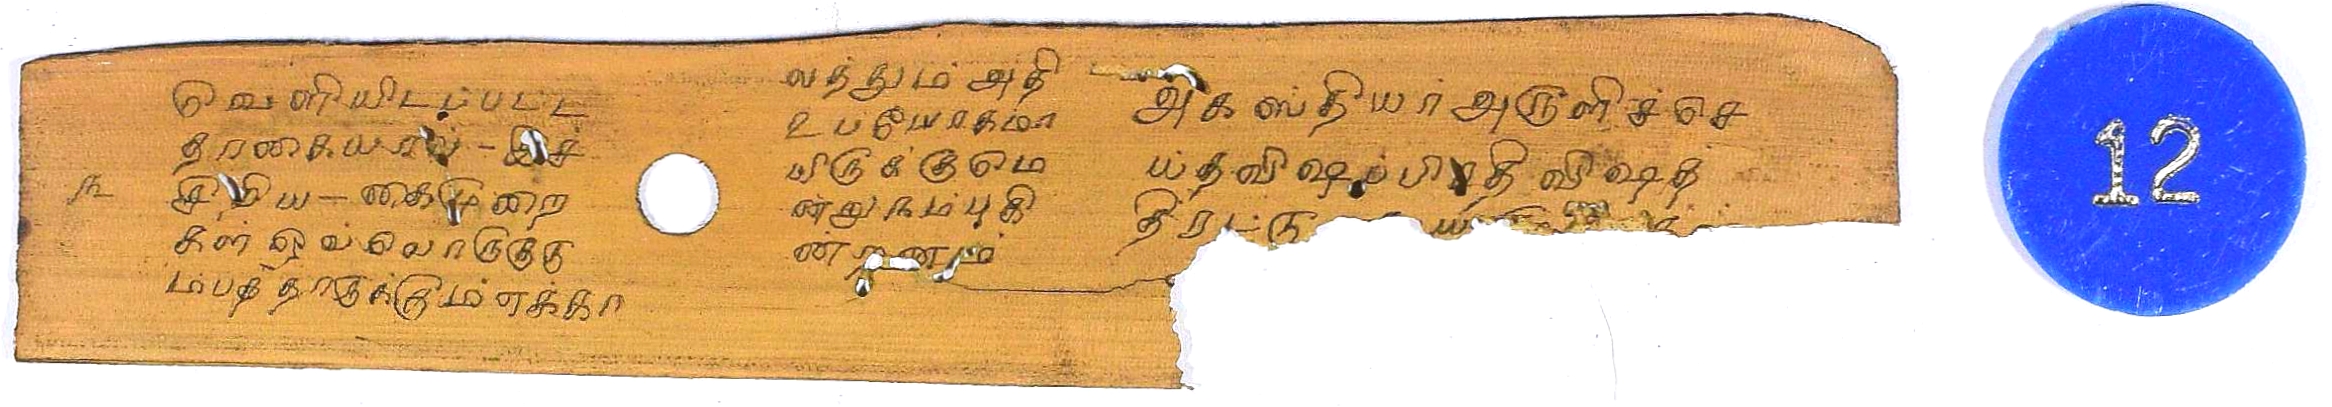 ௩
வெளியிடப்பட்ட
தாகையால் - இச்
சிறிய - கைமுறை
கள் ஒவ்வொருகுடு
ம்பத்தாருக்கும்எக்கா
லத்தும் அதி
உபயோகமா
யிருக்குமெ
ன்றுநம்புகி
ன்றனம்
அகஸ்தியர் அருளிச்செ
ய்த விஷப்பிரதி விஷத்
திரட்டு
12